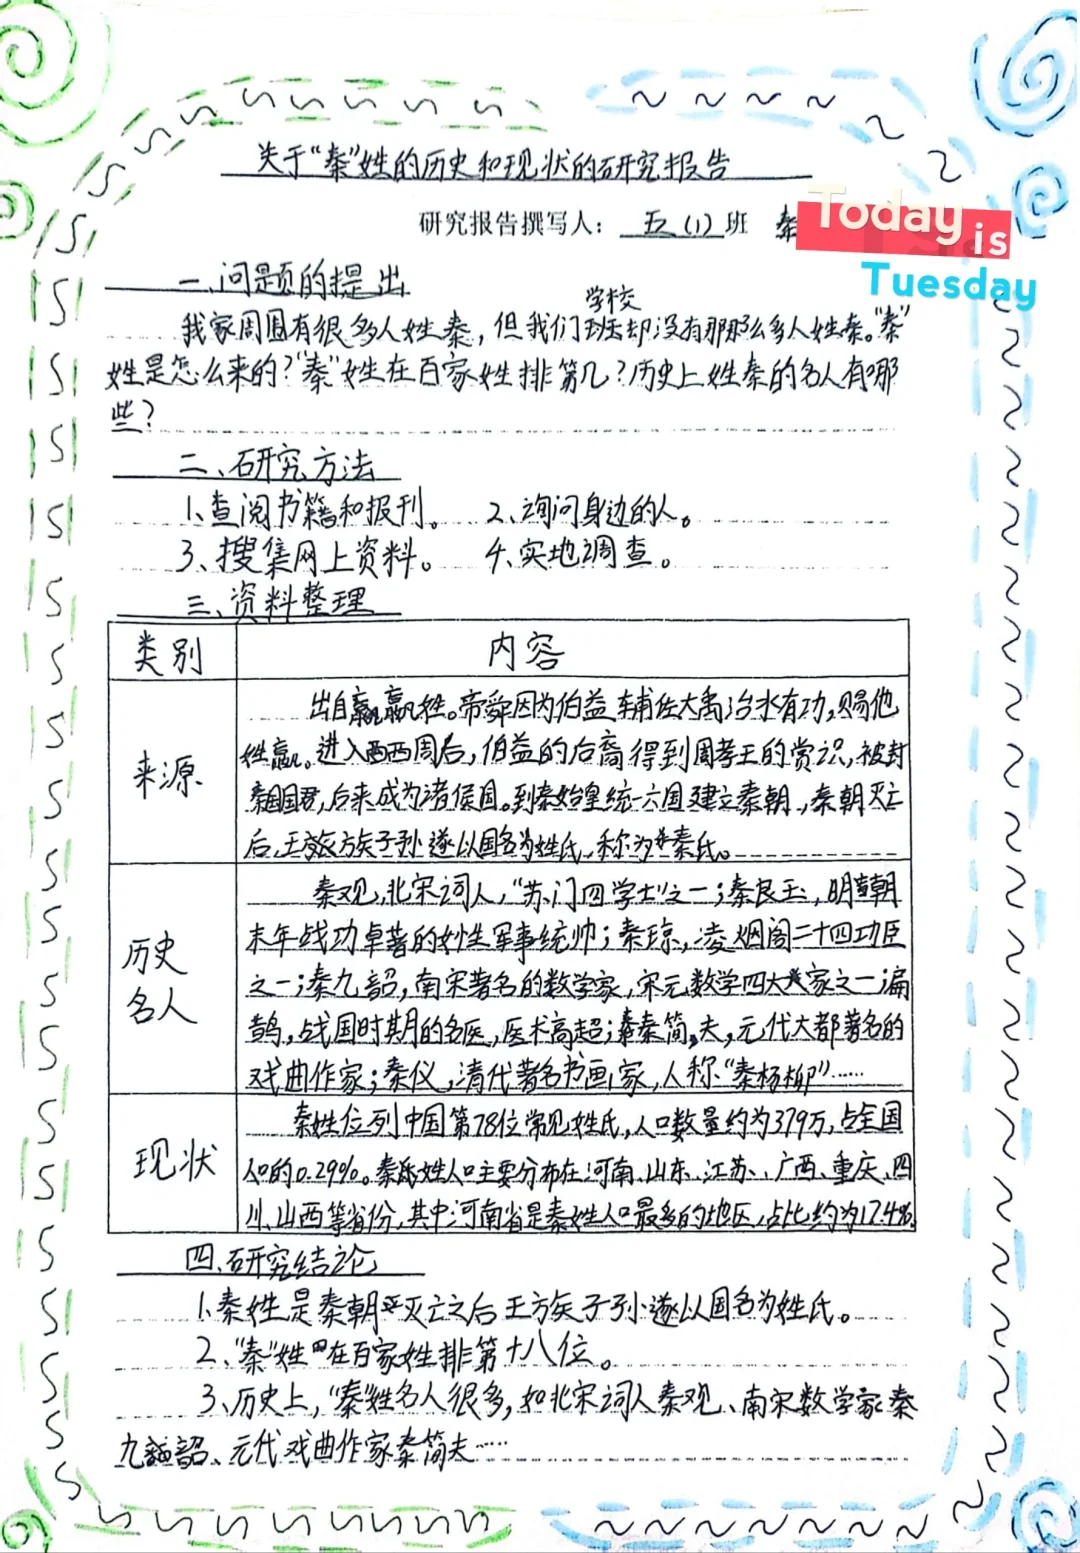 关于“秦”姓的历史和现状的研究报告
研究报告撰写人： 五（1）班 秦
Today is
Tuesday
一、问题的提出
学校
我家周围有很多人姓秦，但我们班却没有那那么多人姓秦。“秦”
姓是怎么来的？“秦”姓在百家姓排第几？历史上姓秦的名人有哪
些？
二、研究方法
1、查阅书籍和报刊。 2、询问身边的人。
3、搜集网上资料。 4、实地调查。
三、资料整理
类别 内容
来源
出自嬴嬴姓。帝舜因为伯益辅佐大禹治水有功，赐他
姓嬴。进入西西周后，伯益的后裔得到周孝王的赏识，被封
秦国国君，后来成为诸侯国。到秦始皇统一六国建立秦朝，秦朝灭亡
后，王族族子孙遂以国名为姓氏，称为秦氏。
历史
名人
秦观，北宋词人，“苏门四学士”之一；秦良玉，明朝
末年战功卓著的女军事统帅；秦琼，凌烟阁二十四功臣
之一；秦九韶，南宋著名的数学家，宋元数学四大家之一；扁
鹊，战国时期的名医，医术高超；秦简夫，元代大都著名的
戏曲作家；秦仪，清代著名书画家，人称“秦杨柳”……
现状
秦姓位列中国第78位常见姓氏，人口数量约为379万，占全国
人口的0.29%。秦氏姓人口主要分布在河南、山东、江苏、广西、重庆、四
川、山西等省份，其中河南省是秦姓人口最多的地区，占比约为17.4%。
四、研究结论
1、秦姓是秦朝灭亡之后王族子孙遂以国名为姓氏。
2、“秦”姓在百家姓排第十八位。
3、历史上，“秦”姓名人很多，如北宋词人秦观、南宋数学家秦
九韶、元代戏曲作家秦简夫……